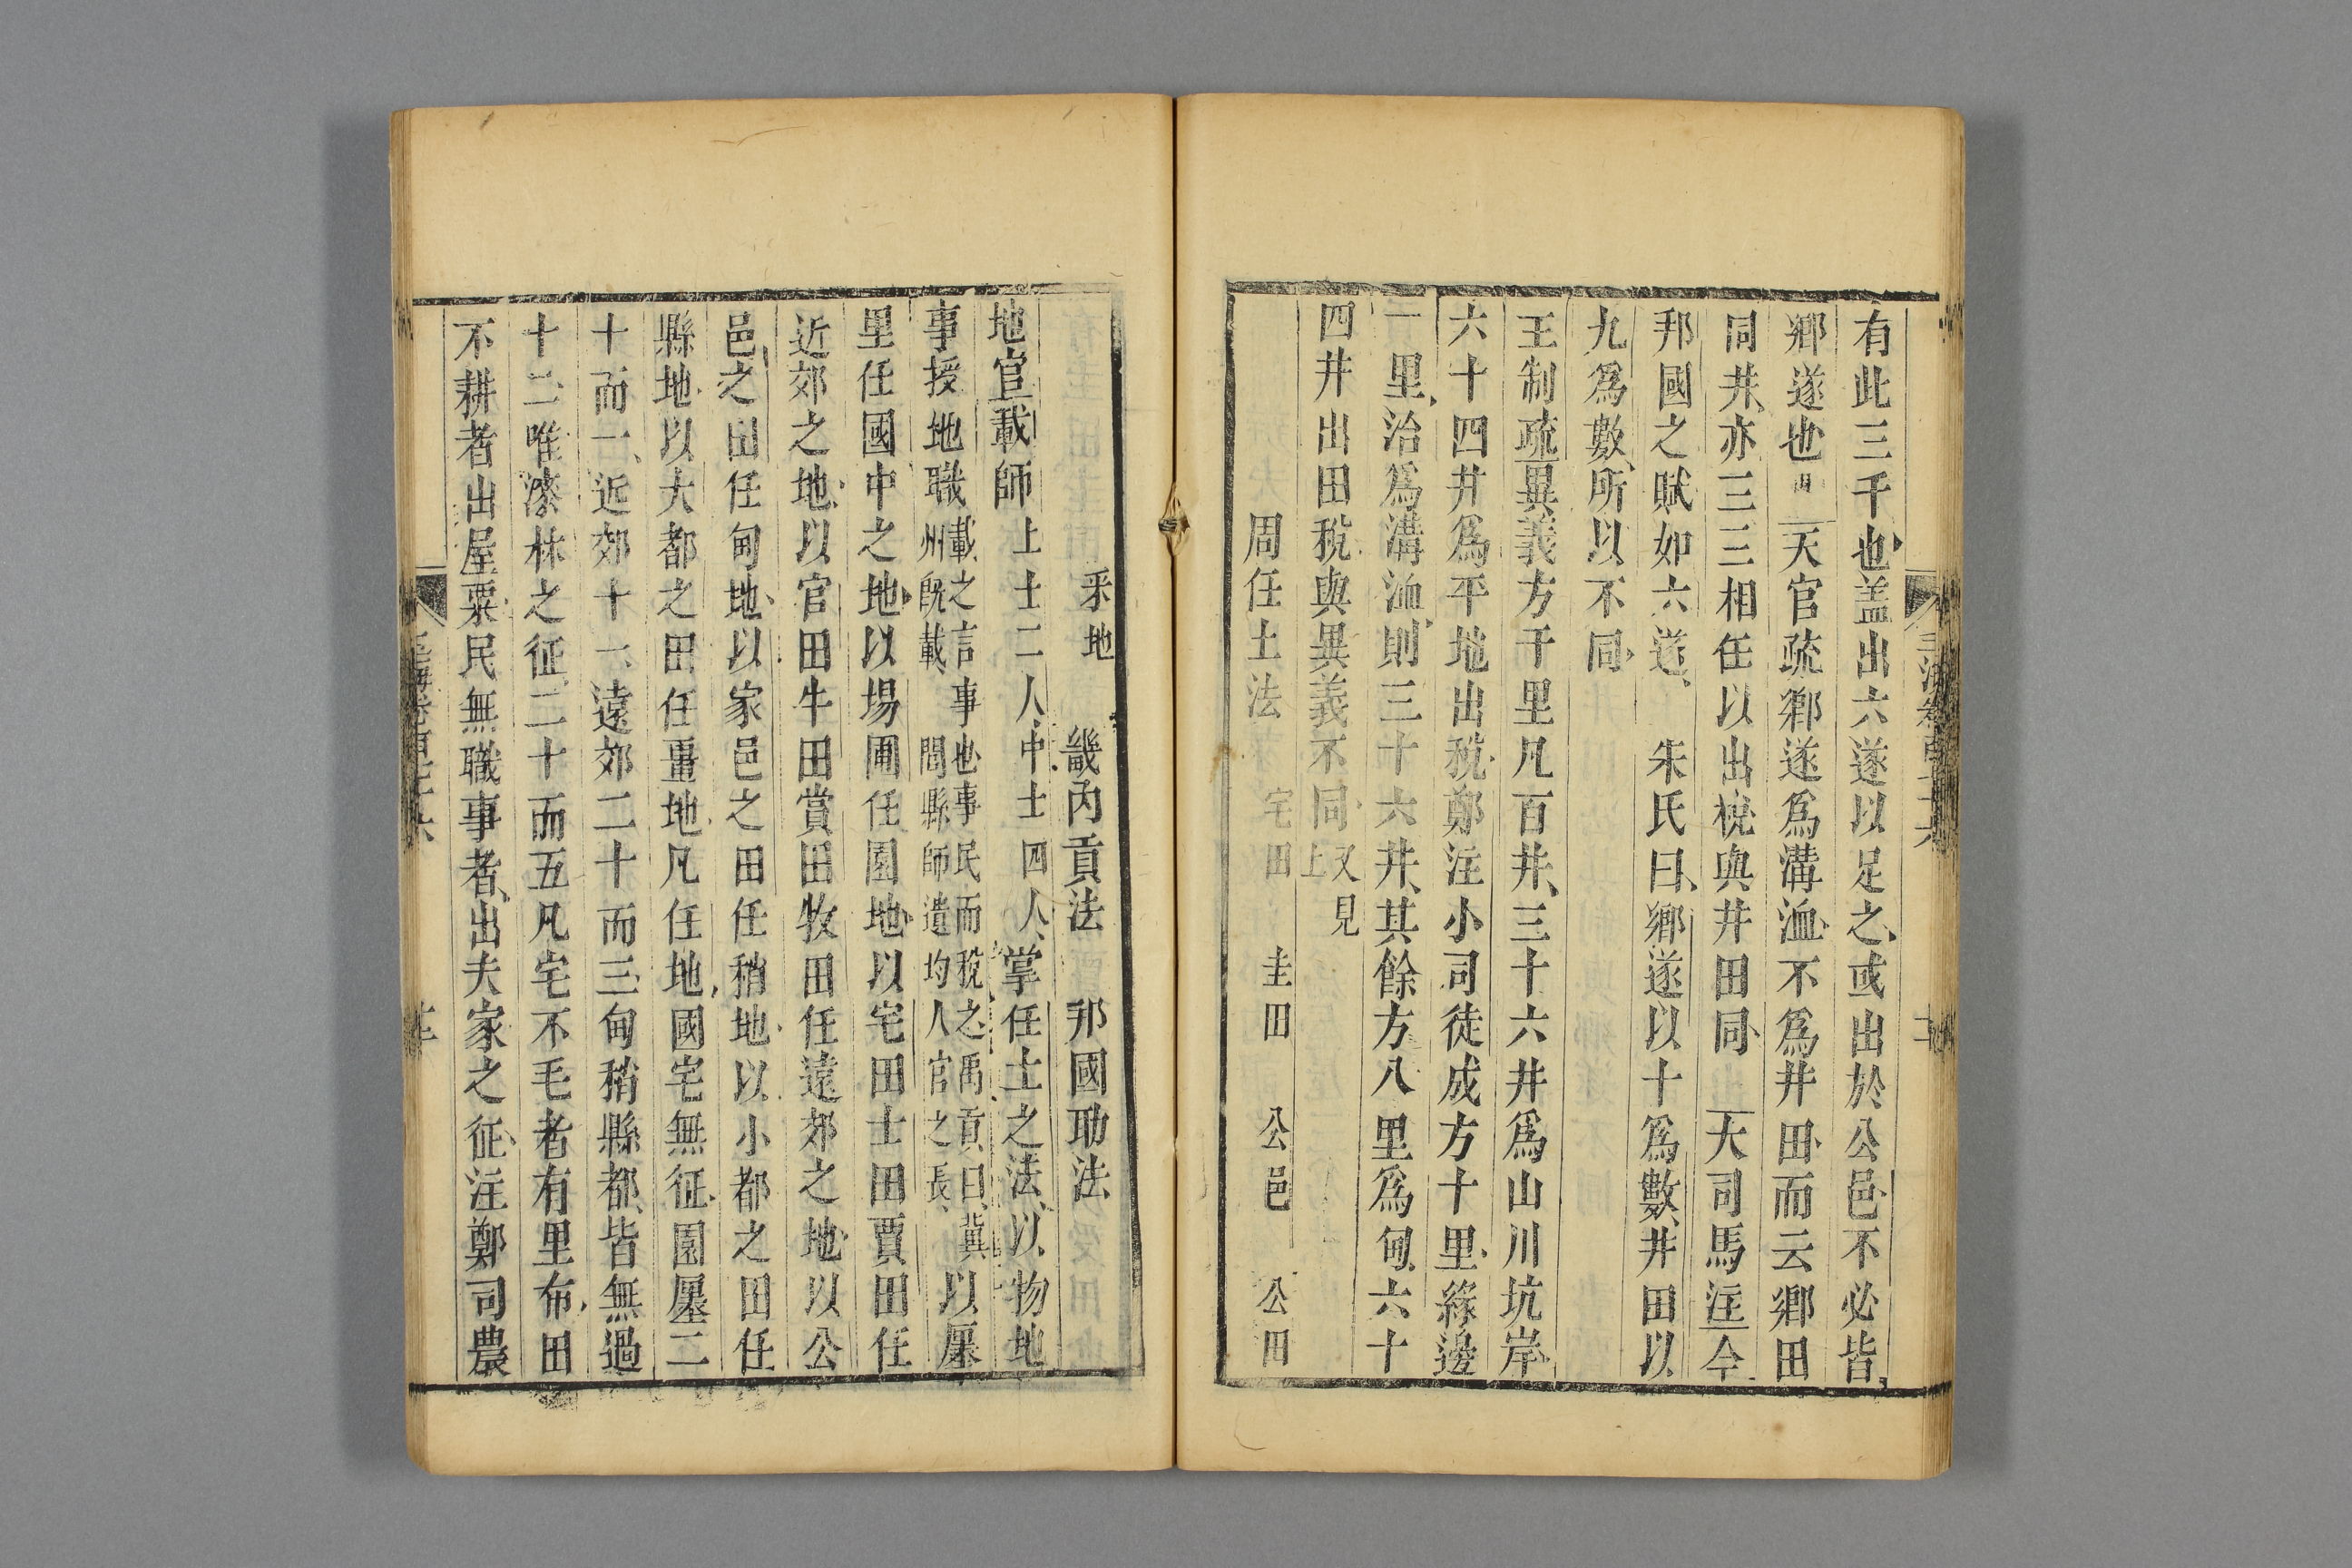 有此三千也盖出六遂以足之或出於公邑不必皆
鄉遂也 天官疏鄉遂爲溝洫不爲井田而云鄉田
同井亦三三相任以出稅與井田同 大司馬注令
邦國之賦如六遂 朱氏曰鄉遂以十爲數井田以
九爲數所以不同
王制疏異義方千里凡百井三十六井爲山川坑岸
六十四井爲平地出稅鄭注小司徒成方十里緣邊
一里治爲溝洫則三十六井其餘方八里爲甸六十
四井出田稅與異義不同又見上
周任土法 宅田 圭田 公邑 公田
采地 畿內貢法 邦國助法
地官載師上士二人中士四人掌任土之法以物地
事授地職載之言事也事民而稅之禹貢曰冀州旣載 閭縣師遺均人官之長以廛
里任國中之地以場圃任園地以宅田士田賈田任
近郊之地以官田牛田賞田牧田任遠郊之地以公
邑之田任甸地以家邑之田任稍地以小都之田任
縣地以大都之田任畺地凡任地國宅無征園廛二
十而一近郊十一遠郊二十而三甸稍縣都皆無過
十二唯漆林之征二十而五凡宅不毛者有里布田
不耕者出屋粟民無職事者出夫家之征注鄭司農